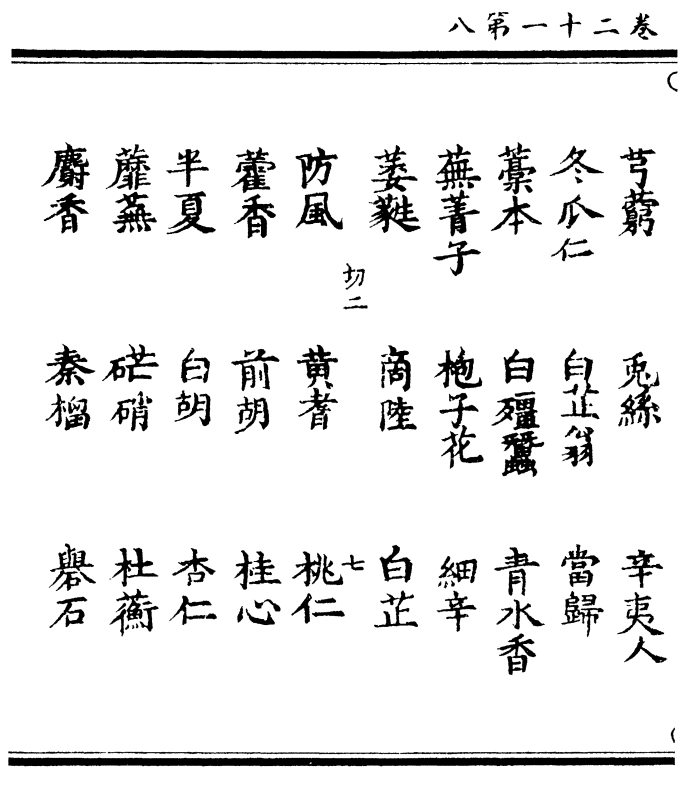 卷二十一第八
芎藭 兎絲 辛夷人
冬瓜仁 白芷翁 當歸
藁本 白殭蠶 青水香
蕪菁子 桅子花 細辛
萎蕤 商陸 白芷
切二 七
防風 黄耆 桃仁
藿香 前胡 桂心
半夏 白胡 杏仁
蘼蕪 硭硝 杜蘅
麝香 秦榴 礜石